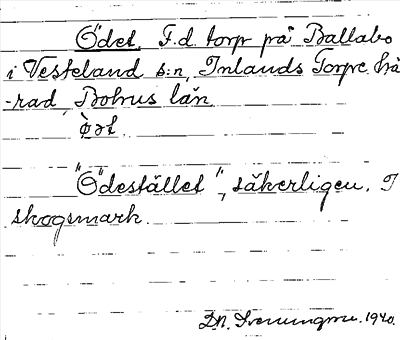 Ödet. F.d. torp på Ballabo
i Vesteland s:n, Inlands Torpe hä
-rad, Bohus län
ø̀ət.
"Ödestället", säkerligen. I
skogsmark.
1940.